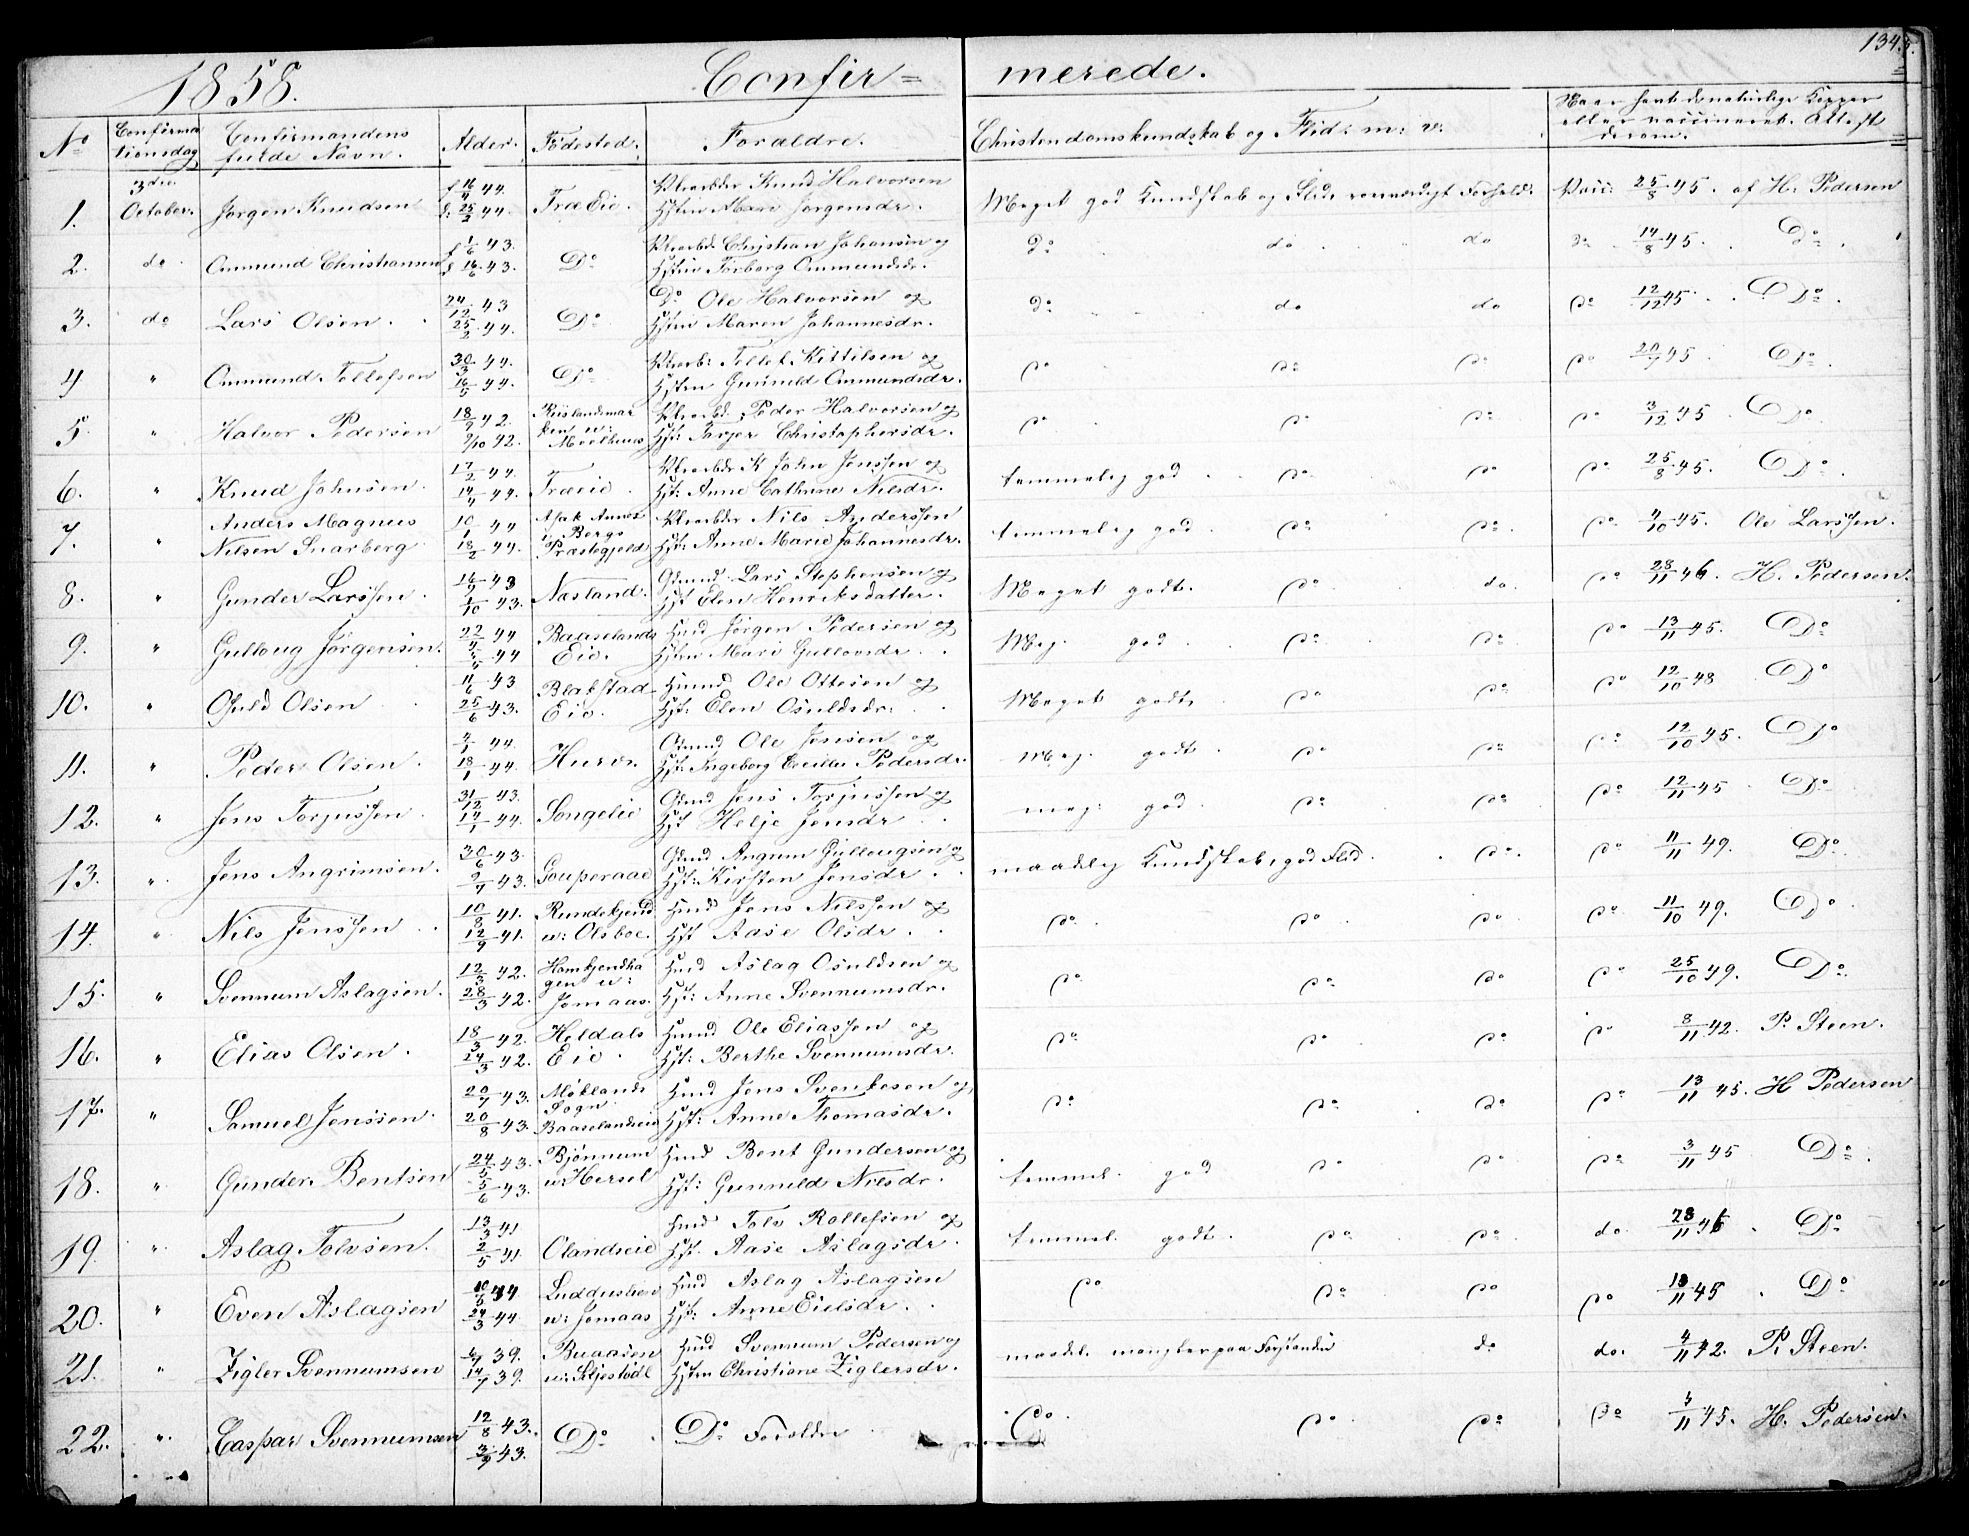 134.
1858. Confir= merede.
No Confirma tionsdag Confirmandens fulde Navn. Alder. Fødested. Forældre. Christendomskundskab og Flid: m: v: Naar havt de naturlige Kopper eller vaccineret. Attest derom.
1. 3die October. Jørgen Knudsen f 16/4 44. d. 25/2 44. Træ Eie. Knud Halvorsen Hstru Mari Jørgensdr. Meget god Kundskab og Flid, Forhold. Vacc: 25/8 45. af H. Pedersen
2. do Ommund Christiansen f 1/6 43. d 16/6 43. Do Christian Johansen og Hstru Torborg Ommundsdr. do do do do 14/8 45. Do
3. do Lars Olsen. 24/12 43 25/2 44. Do Do Ole Halvorsen og Hstru Maren Johannesdr. do do do do 12/12 45. Do
4 " Ommund Tellefsen 30/3 44. 16/5 44. Do Tellef Kittilsen og Hstru Gunnild Ommundsdr. do do do do 20/7 45 Do
5. " Halvor Pedersen 18/9 42. 9/10 42. Peder Halvorsen og Hst: Tarjer Christophersdr. do do do do 3/12 45 Do
6. " Knud Johnsen. 17/2 44. 14/4 44. Træeie. John Jenssen og Hst: Anne Cathrine Nilsdr. temmelig god do do do 25/8 45. Do
7. " Anders Magnus Nilsen Snarberg 10/1 44 18/2 44. Bergs Præstegjeld Nils Anderssen Hst: Anne Marie Johannesdr. temmelig god do do do 4/10 45. Ole Larssen.
8. " Gunder Larssen. 16/9 43 1/10 43. Næsland. Lars Stephensen og Hst Elen Henriksdatter. Meget godt. do do. do 28/11 46. H. Pedersen.
9. " Gulloug Jørgensen. 22/4 44 Baaselands Eie. Hmd Jørgen Pedersen og Hstru Mari Gullovsdr. Meg. god do do do 13/11 45. Do
10. " Osuld Olsen 11/6 43 25/6 43. Blakstad Eie. Hmd Ole Ottesen og Hst: Elen Osuldsdr. Meget godt. do do do 12/10 48 Do
11. " Peder Olsen. 4/1 44. 18/1 44. Hurv. Gmd Ole Jensen og Hst: Ingeborg Cecilie Pedersdr. Meg. godt. do do do 12/10 45. Do
12. " Jens Torjussen. 31/12 43. 14/1 44. Songeleie Gmd Jens Torjussen og Hst Helje Jensdr meg: god do do do 12/11 45 Do
13. " Jens Angrimsen. 30/6 43. 9/7 43. Gouperaae Gmd Angrim Gullougsen og Hst: Kirsten Jensdr. maadelig Kundskab, god Flid. do. do 11/11 49. Do
14. " Nils Jenssen. 10/8 41. 12/9 41. Rundekjend u: Olsboe. Hmd Jens Nilssen og Hst Aase Olsdr. do. do do do 11/10 49. Do
15. " Svennum Aslagsen. 12/3 42. 28/3 42. Hamkjendha gen u: Jomaas. Hmd Aslag Osuldsen og Hst: Anne Svennumsdr. do do do do 25/10 49. Do.
16. " Elias Olsen. 18/3 42. 24/3 42. Heldals Eie. Hmd Ole Eliassen og Hst: Berthe Svennumsdr. do do do do 8/11 42. P. Steen.
17. " Samuel Jenssen. 20/7 43. 20/8 43. Møklands Sogn Baaselandseie Hmd Jens Svenkesen og Hst: Anne Thomasdr. do do do do 13/11 45. H Pedersen
18. " Gunder Bentsen 24/5 43. 5/6 43. Bjønnum u: Hersel Hmd Bent Gundersen og Hst: Gunnild Nilsdr. temmel. god do do do 3/11 45 Do
19. " Aslag Tolvsen. 13/3 41 2/5 41. Olandseie Hmd Tolv Rollefsen og Hst. Aase Aslagsdr. temmel. godt. do do do. 28/11 46. Do
20. " Even Aslagsen 10/3 44 24/3 44. u: Jomaas Hmd Aslag Aslagsen Hst: Anne Eielsdr. do do do do 13/11 45. Do
21. " Zigler Svennumsen 39. 14/7 39. Buaasen Hmd Svennum Pedersen og Hstru Christiane Ziglersdr. maadel. mangler paa Forstand do do. 4/11 42. P. Steen.
22. " Caspar Svennumsen 12/8 43. 3/9 43. Do Do Forældre Do do do do 3/11 45. H. Pedersen.